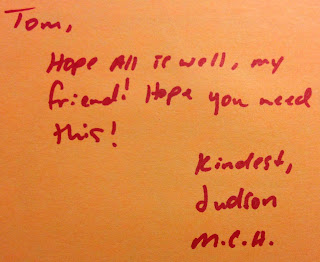 Tom,
Hope All is well, my
friend! Hope you need
this!
Kindest,
Judson
M.C.H.